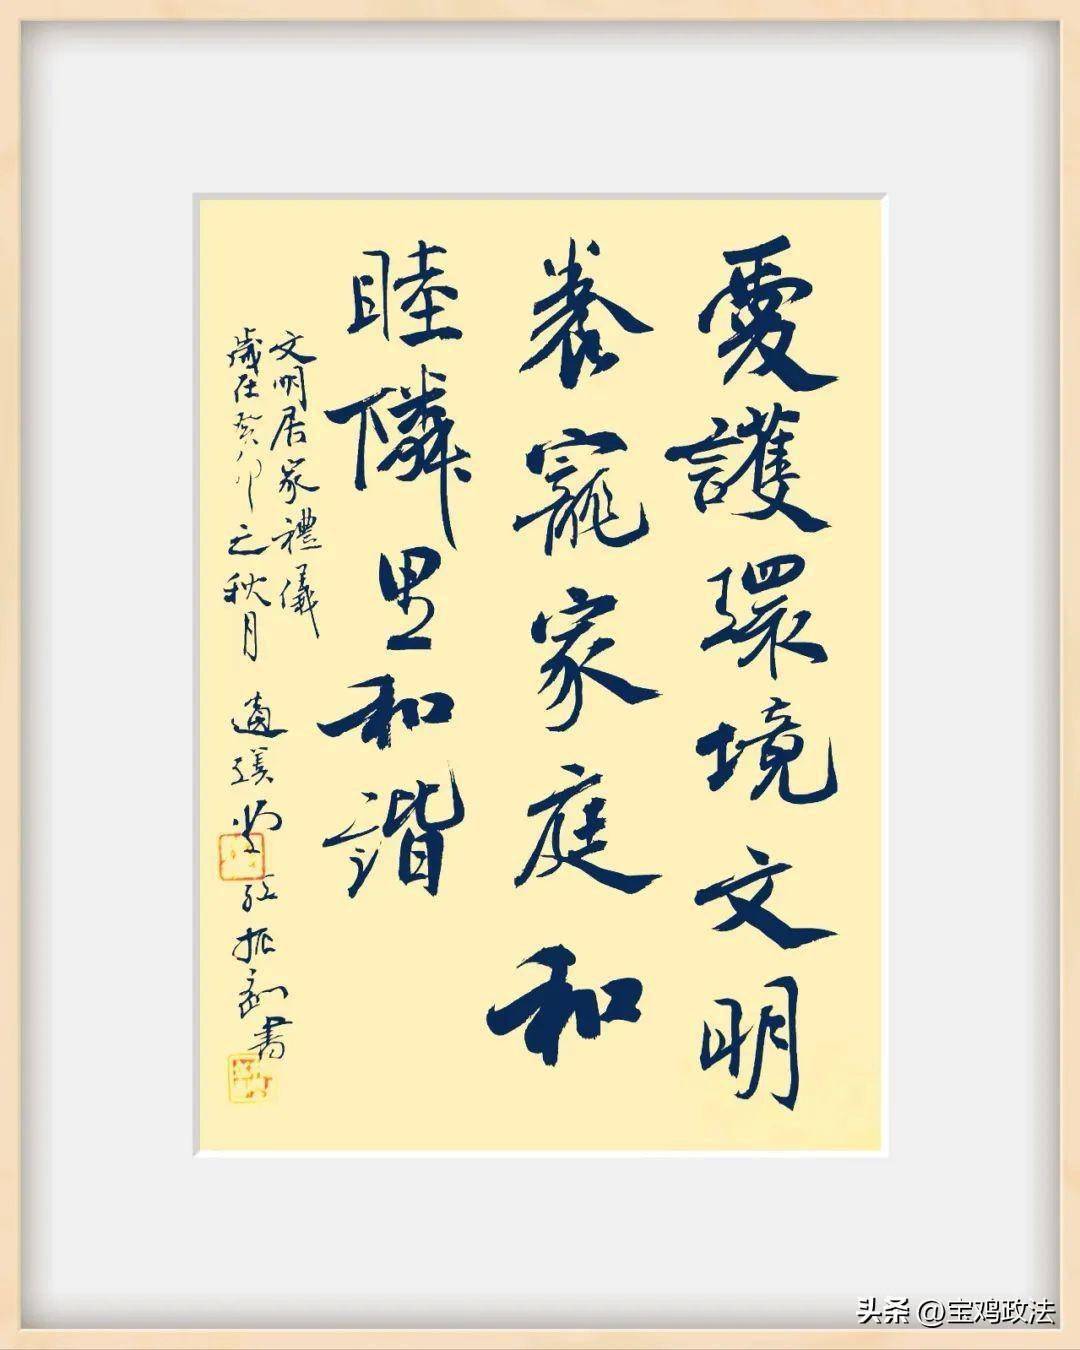 愛護環境文明
養寵家庭和
睦隣里和諧
文明居家禮儀
歲在癸卯之秋月 適 堂 振 書
头条 @宝鸡政法